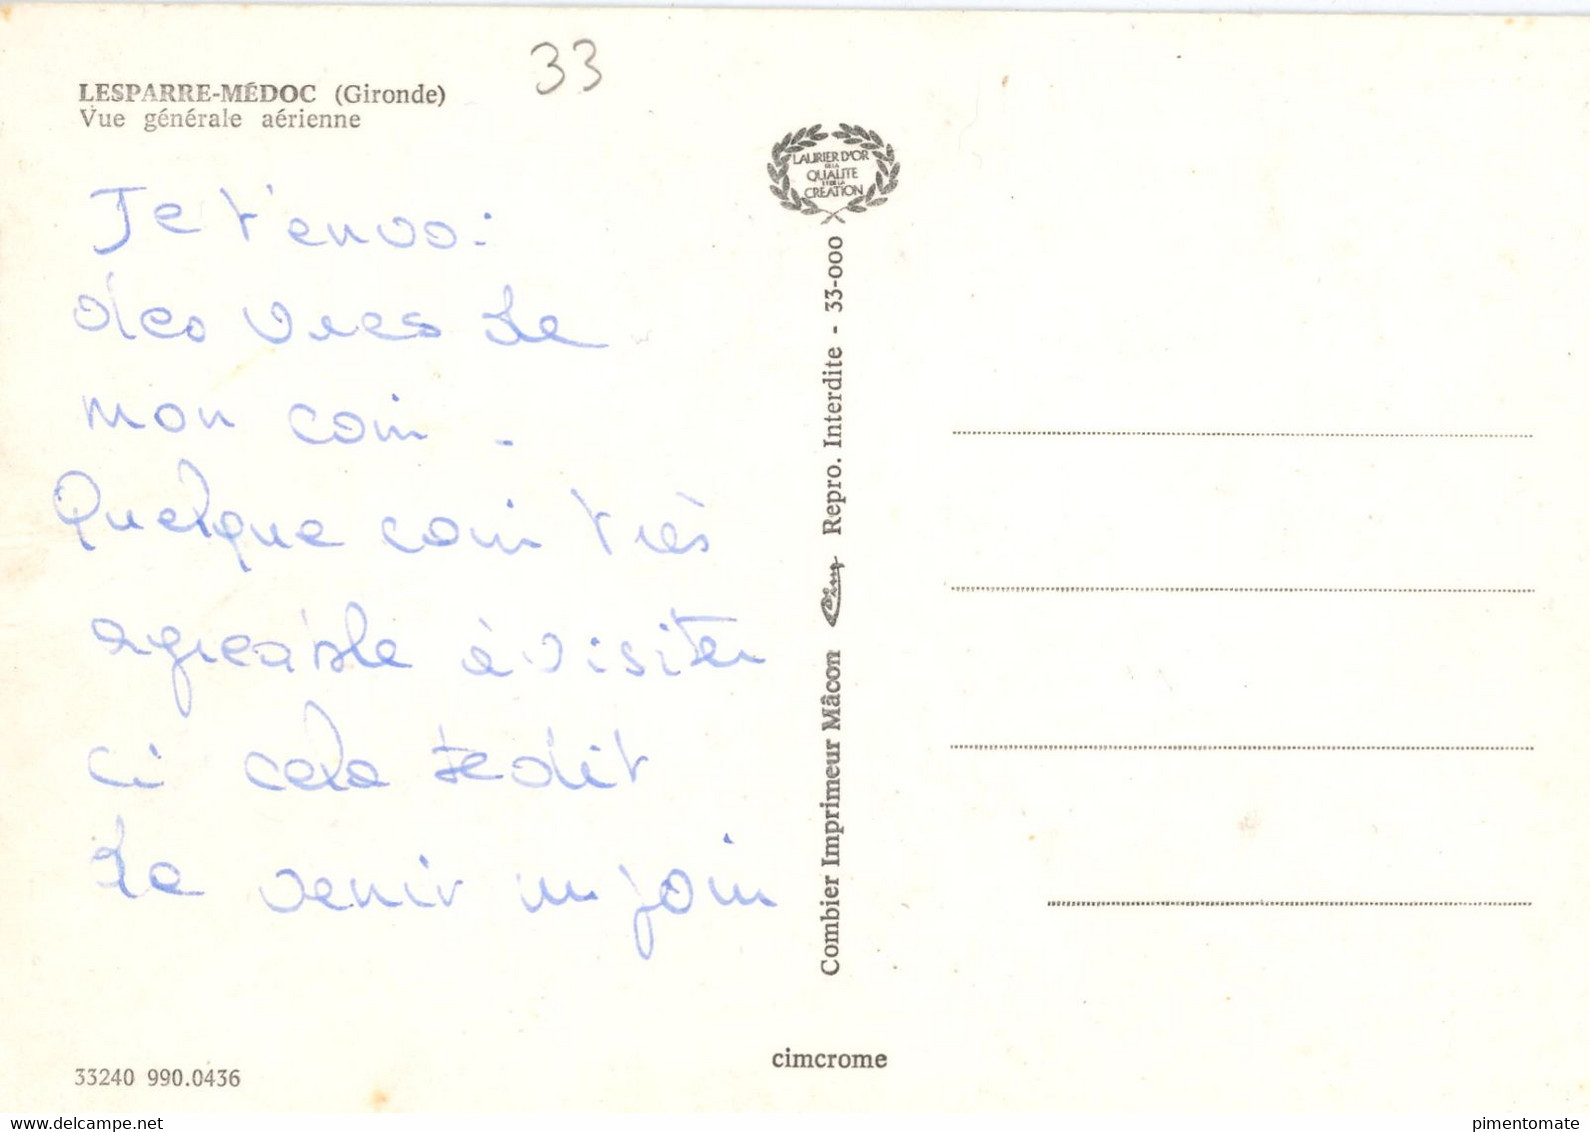 33
LESPARRE-MÉDOC (Gironde)
Vue générale aérienne
Je t'envoi
des vues de
mon coin.
Quelque coin très
agréable à visiter
ci cela te dit
de venir un join
LAURIER D'OR
DE LA
QUALITE
ET DE LA
CREATION
Combier Imprimeur Mâcon Cim Repro. Interdite - 33-000
cimcrome
33240 990.0436
delcampe.net
pimentomate